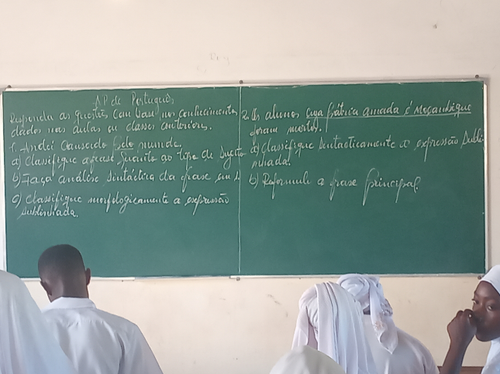 AP de Português
Responda as questões com base nos conhecimentos
dados nas aulas ou classes anteriores.
1. Andei cansado pelo mundo.
a) Classifique a frase quanto ao tipo de sujeito
b) Faça análise sintáctica da frase em 1.
c) Classifique morfologicamente a expressão
sublinhada.
2. Os alunos cuja pátria amada é Moçambique
foram mortos.
a) Classifique sintacticamente a expressão subli-
nhada.
b) Reformule a frase principal.